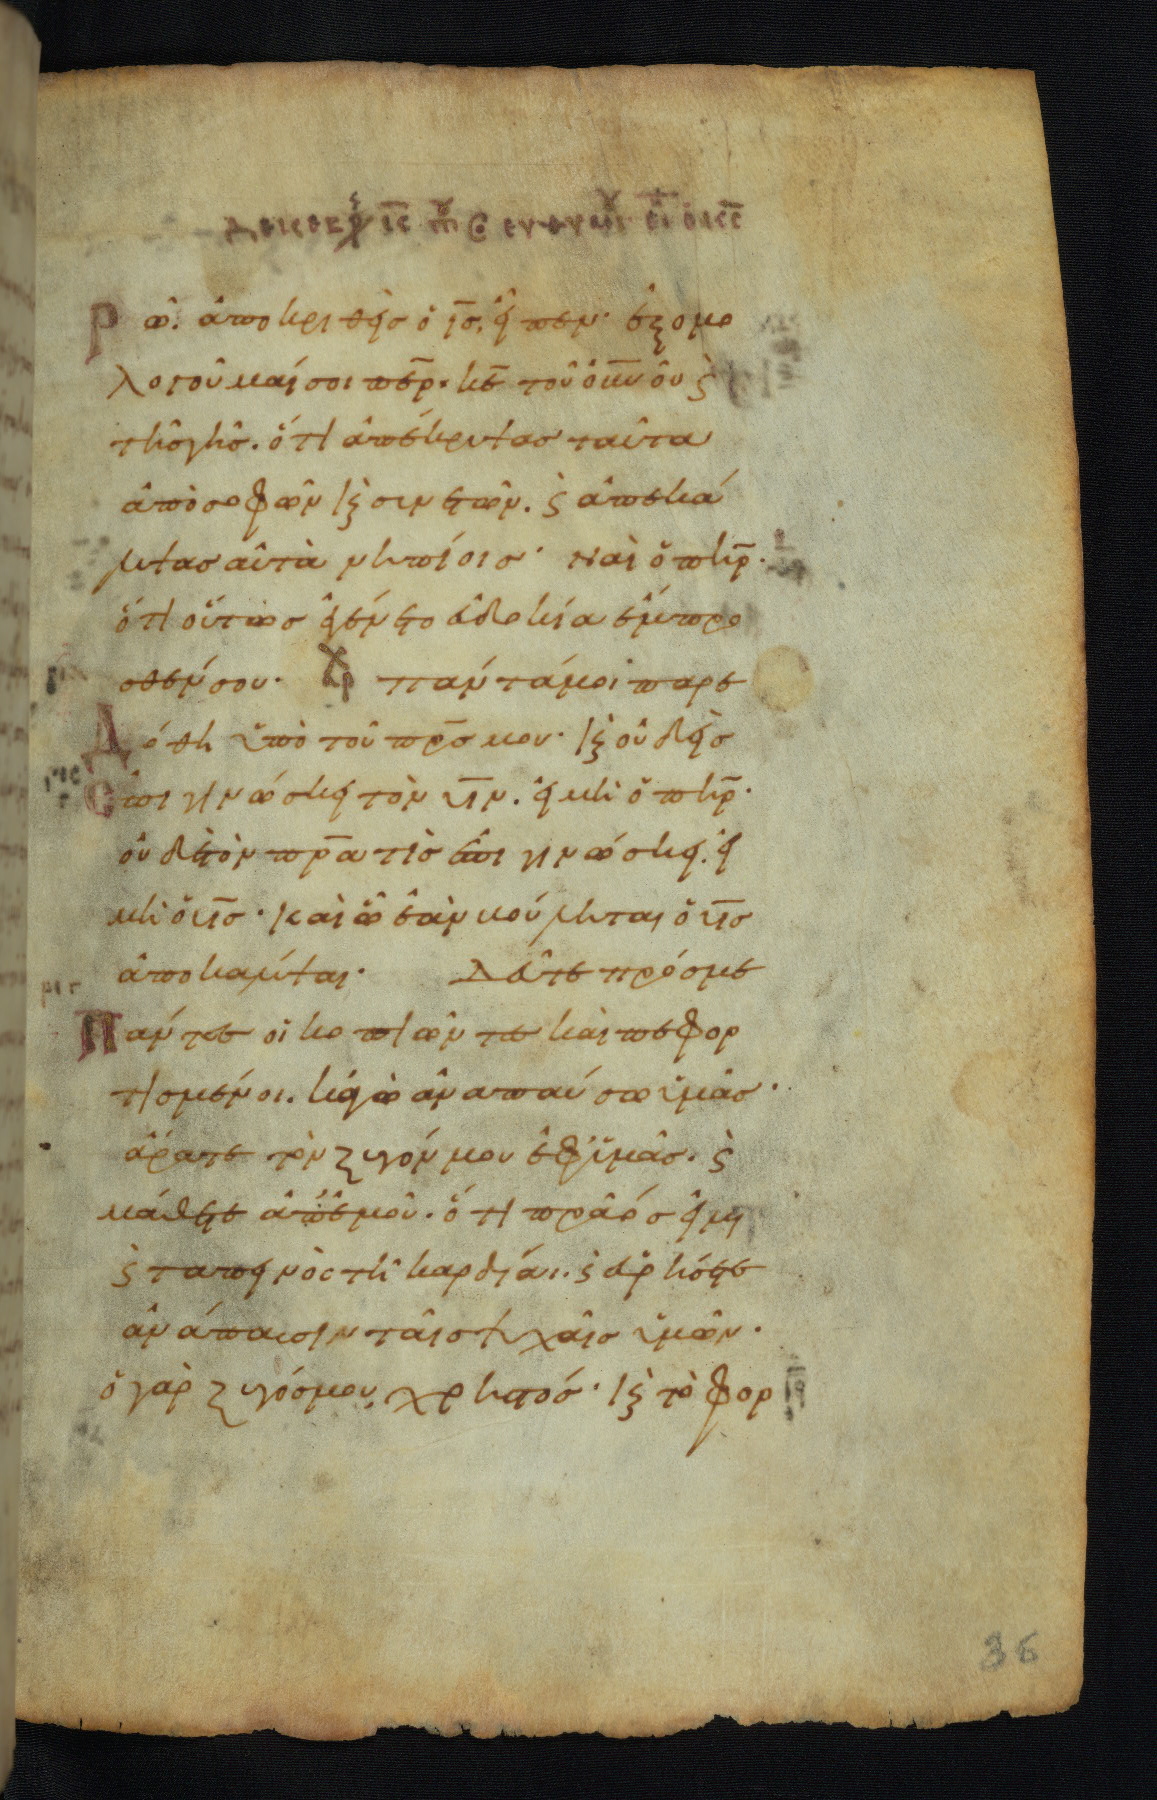 ρῶ. ἀποκριθεὶς ὁ ις, εἶπεν· ἐξομο
λογοῦμαί σοι περ. κε τοῦ οὐνοῦ ϛ
τῆς γῆς. ὅτι ἀπέκρυψας ταῦτα
ἀπὸ σοφῶν κ συνετῶν. ϛ ἀπεκά
λυψας αὐτὰ νηπίοις· ναὶ ὁ πηρ.
ὅτι οὕτως ἐγένετο εὐδοκία ἔμπρο
σθέν σου· πάντά μοι παρε
Δόθη ὑπὸ τοῦ πρς μου· κ οὐδεὶς
Ἐπιγινώσκει τὸν υιν. εἰ μὴ ὁ πηρ.
οὐδὲ τὸν πρα τὶς ἐπιγινώσκει. εἰ
μὴ ὁ υις· καὶ ᾧ ἐὰν βούληται ὁ υις
ἀποκαλύψαι· Δεῦτε πρός με
Πάντες οἱ κοπιῶντες καὶ πεφορ
τισμένοι. κἀγὼ ἀναπαύσω ὑμᾶς·
ἄρατε τὸν ζυγόν μου ἐφ' ὑμᾶς. ϛ
μάθετε ἀπ' ἐμοῦ. ὅτι πρᾶός εἰμι
ϛ ταπεινὸς τῆ καρδίαι. ϛ εὑρήσετε
ἀνάπαυσιν ταῖς ψυχαῖς ὑμῶν.
ὁ γὰρ ζυγός μου, χρηστός· κ τὸ φορ
36